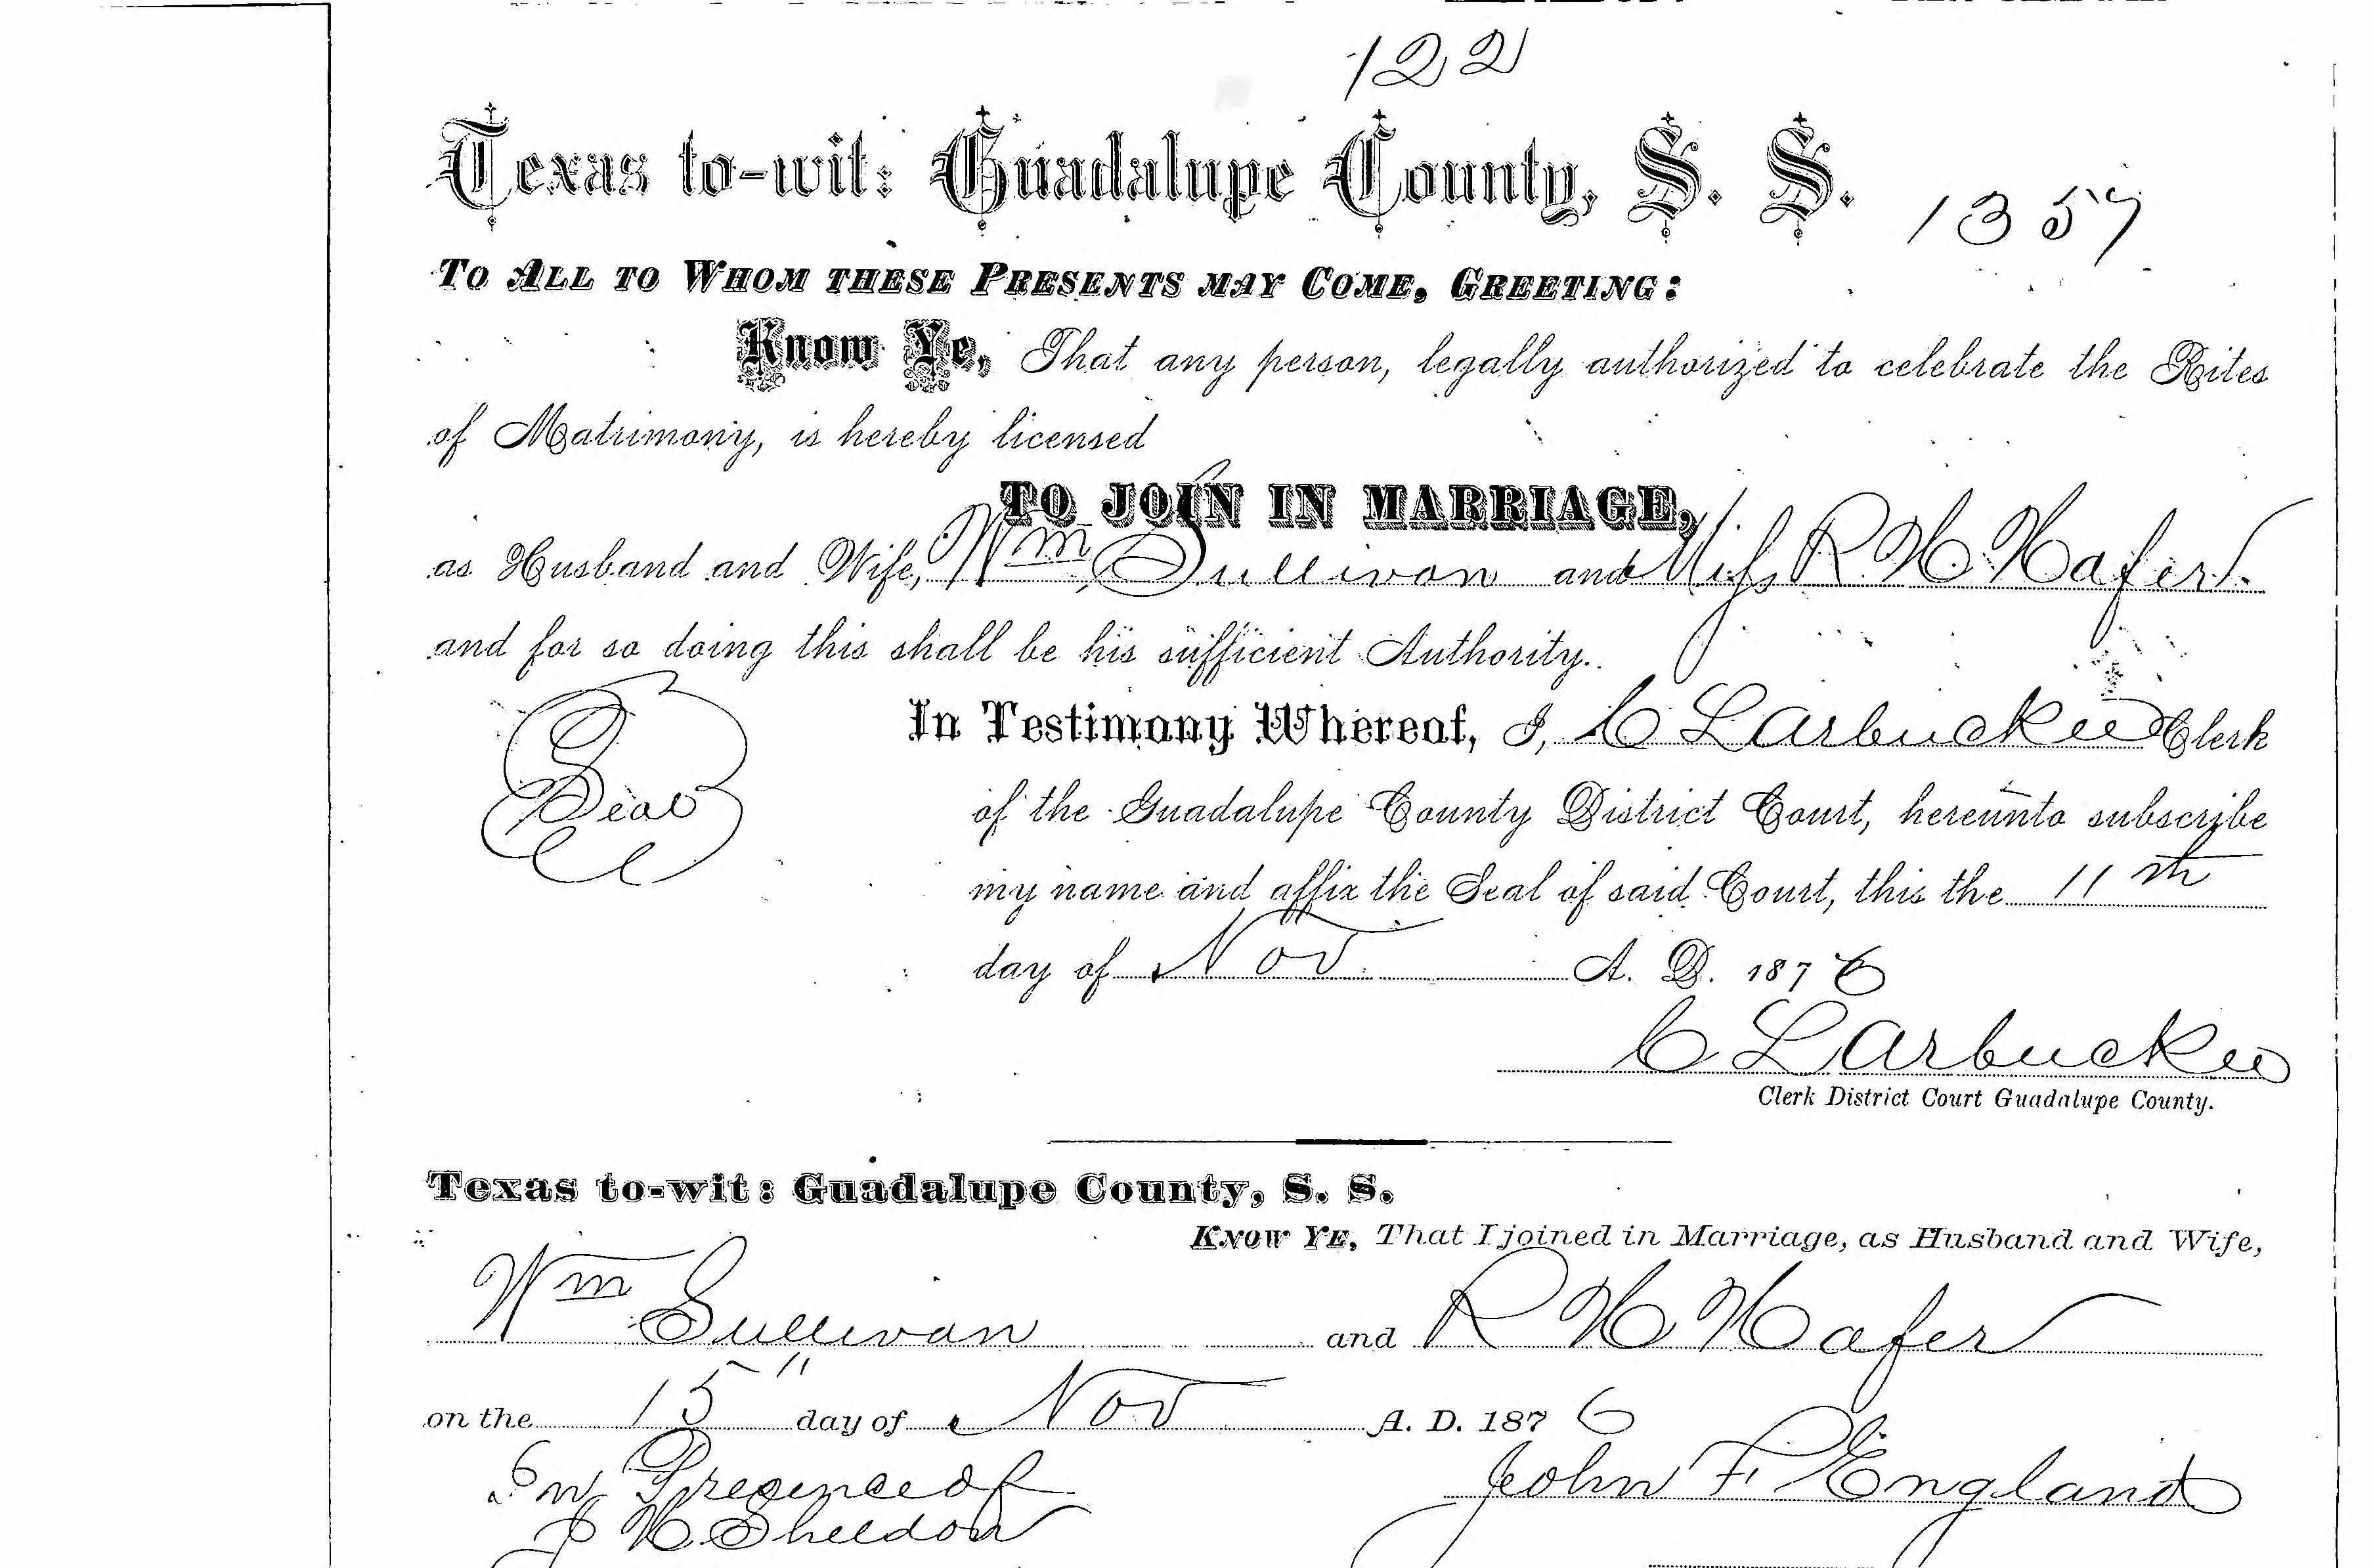 122
Texas to-wit: Guadalupe County, S. S.
1357
To All to Whom these Presents may Come, Greeting:
Know Ye, That any person, legally authorized to celebrate the Rites
of Matrimony, is hereby licensed
TO JOIN IN MARRIAGE,
as Husband and Wife, Wm Sullivan and Miss R H Hafer
and for so doing this shall be his sufficient Authority.
In Testimony Whereof, I, C L Arbuckle Clerk
Seal
of the Guadalupe County District Court, hereunto subscribe
my name and affix the Seal of said Court, this the 11th
day of Nov A. D. 1876
C L Arbuckle
Clerk District Court Guadalupe County.
Texas to-wit: Guadalupe County, S. S.
Know Ye, That I joined in Marriage, as Husband and Wife,
Wm Sullivan and R H Hafer
on the 15" day of Nov A. D. 1876
In Presence of
John F England
J H Sheldon